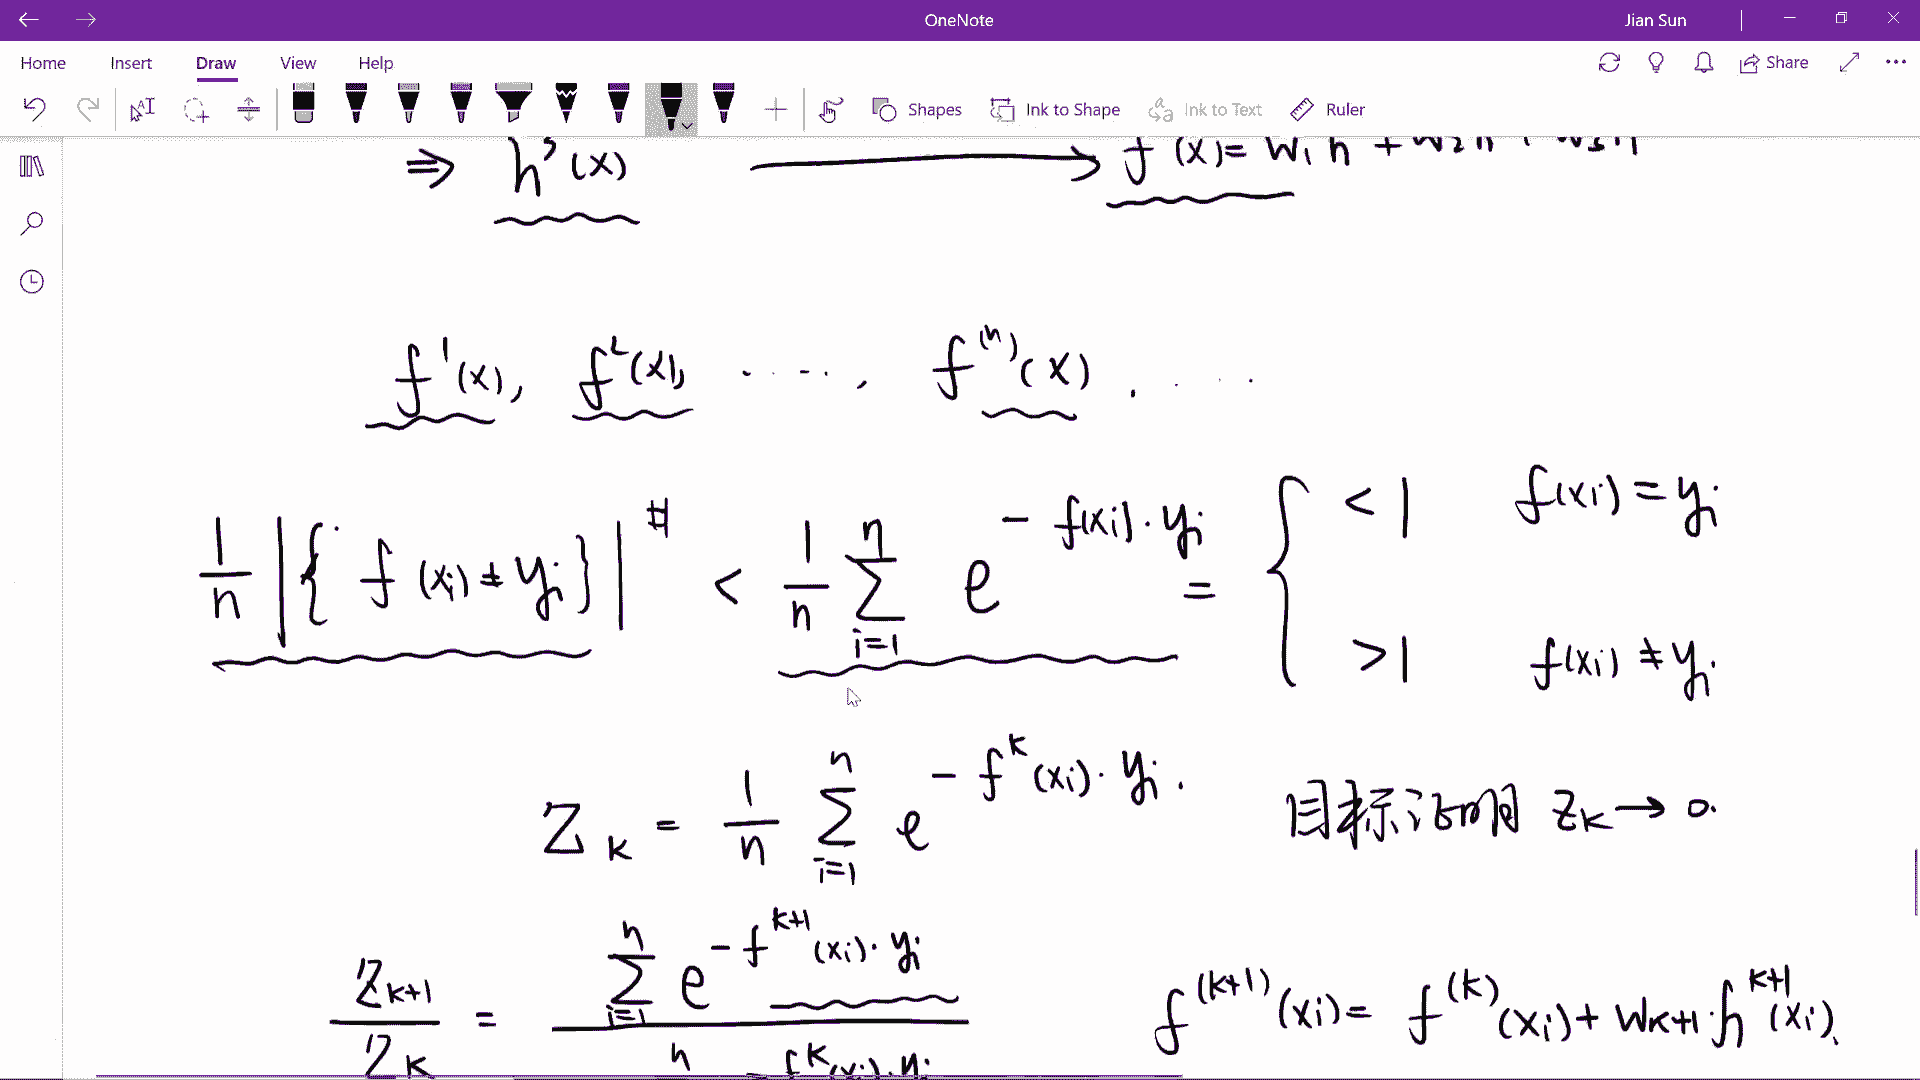 OneNote
Jian Sun
Home Insert Draw View Help
Share
Shapes Ink to Shape Ink to Text Ruler
⇒ h³(x) → f(x) = w₁h + w₂h + w₃h
f¹(x), f²(x), ....., f⁽ⁿ⁾(x), ....
1/n |{f(xᵢ) ≠ yᵢ}|^# < 1/n Σ_{i=1}^{n} e^{-f(xᵢ)·yᵢ} = { < 1 f(xᵢ) = yᵢ
> 1 f(xᵢ) ≠ yᵢ
Z_k = 1/n Σ_{i=1}^{n} e^{-f^k(xᵢ)·yᵢ}. 目标证明 Z_k → 0.
Z_{k+1}/Z_k = Σ_{i=1}^{n} e^{-f^{k+1}(xᵢ)·yᵢ} / n - f^k(xᵢ)·yᵢ f^{(k+1)}(xᵢ) = f^{(k)}(xᵢ) + w_{k+1}·h^{k+1}(xᵢ).